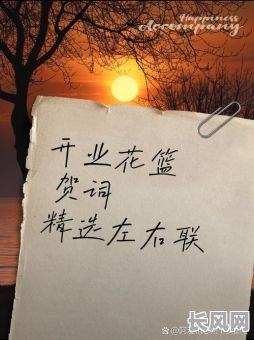 Happiness
accompany
开业花篮
贺词
精选左右联
长风网